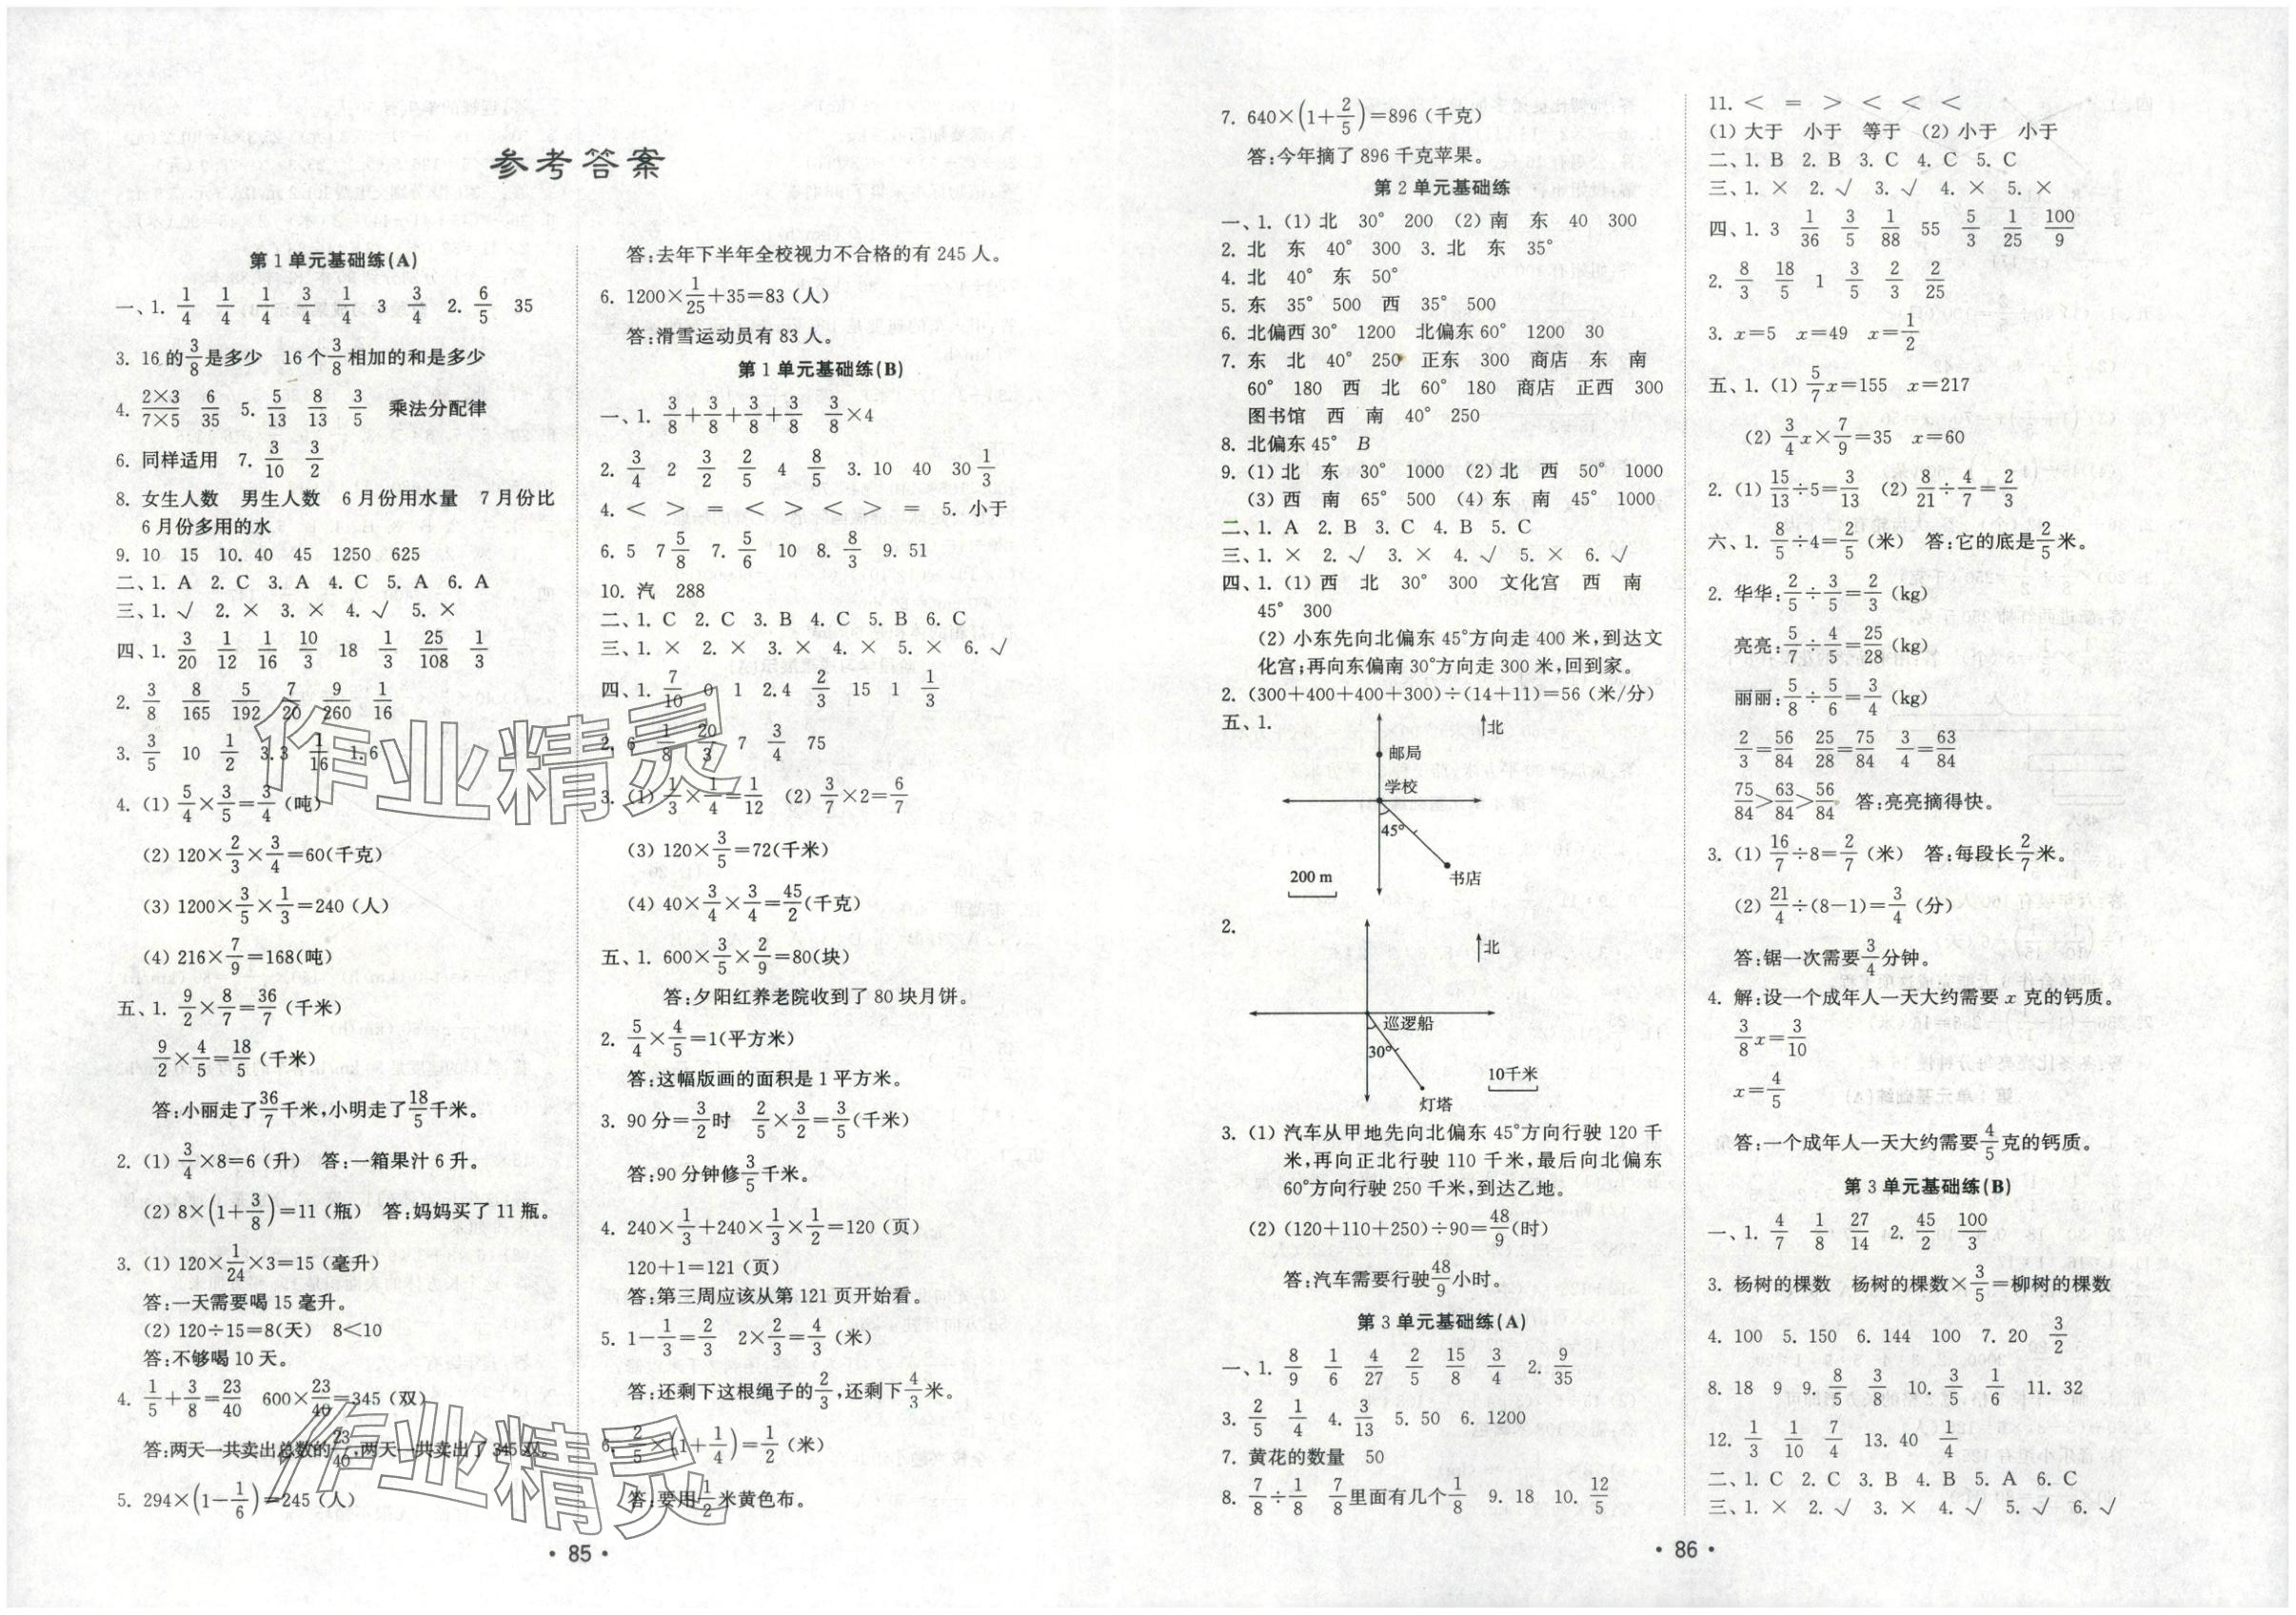 参考答案
第1单元基础练(A)
一、1. 1/4 1/4 1/4 3/4 1/4 3 3/4 2. 6/5 35
3. 16的3/8是多少 16个3/8相加的和是多少
4. 2×3/7×5 6/35 5. 5/13 8/13 3/5 乘法分配律
6. 同样适用 7. 3/10 3/2
8. 女生人数 男生人数 6月份用水量 7月份比
6月份多用的水
9. 10 15 10. 40 45 1250 625
二、1. A 2. C 3. A 4. C 5. A 6. A
三、1. √ 2. × 3. × 4. √ 5. ×
四、1. 3/20 1/12 1/16 10/3 18 1/3 25/108 1/3
2. 3/8 8/165 5/192 7/20 9/260 1/16
3. 3/5 10 1/2 3.3 1/16 1.6
4. (1) 5/4×3/5=3/4(吨)
(2) 120×2/3×3/4=60(千克)
(3) 1200×3/5×1/3=240(人)
(4) 216×7/9=168(吨)
五、1. 9/2×8/7=36/7(千米)
9/2×4/5=18/5(千米)
答:小丽走了36/7千米,小明走了18/5千米。
2. (1) 3/4×8=6(升) 答:一箱果汁6升。
(2) 8×(1+3/8)=11(瓶) 答:妈妈买了11瓶。
3. (1) 120×1/24×3=15(毫升)
答:一天需要喝15毫升。
(2) 120÷15=8(天) 8<10
答:不够喝10天。
4. 1/5+3/8=23/40 600×23/40=345(双)
答:两天一共卖出总数的23/40,两天一共卖出了345双。
5. 294×(1-1/6)=245(人)
答:去年下半年全校视力不合格的有245人。
6. 1200×1/25+35=83(人)
答:滑雪运动员有83人。
第1单元基础练(B)
一、1. 3/8+3/8+3/8+3/8 3/8×4
2. 3/4 2 3/2 2/5 4 8/5 3. 10 40 30 1/3
4. < > = < > < > = 5. 小于
6. 5 7 5/8 7. 5/6 10 8. 8/3 9. 51
10. 汽 288
二、1. C 2. C 3. B 4. C 5. B 6. C
三、1. × 2. × 3. × 4. × 5. × 6. √
四、1. 7/10 0 1 2.4 2/3 15 1 1/3
2. 6 1/8 20/3 7 3/4 75
3. (1) 1/3×1/4=1/12 (2) 3/7×2=6/7
(3) 120×3/5=72(千米)
(4) 40×3/4×3/4=45/2(千克)
五、1. 600×3/5×2/9=80(块)
答:夕阳红养老院收到了80块月饼。
2. 5/4×4/5=1(平方米)
答:这幅版画的面积是1平方米。
3. 90分=3/2时 2/5×3/2=3/5(千米)
答:90分钟修3/5千米。
4. 240×1/3+240×1/3×1/2=120(页)
120+1=121(页)
答:第三周应该从第121页开始看。
5. 1-1/3=2/3 2×2/3=4/3(米)
答:还剩下这根绳子的2/3,还剩下4/3米。
6. 2/5×(1+1/4)=1/2(米)
答:要用1/2米黄色布。
作业精灵
作业精灵
• 85 •
7. 640×(1+2/5)=896(千克)
答:今年摘了896千克苹果。
第2单元基础练
一、1. (1) 北 30° 200 (2) 南 东 40 300
2. 北 东 40° 300 3. 北 东 35°
4. 北 40° 东 50°
5. 东 35° 500 西 35° 500
6. 北偏西30° 1200 北偏东60° 1200 30
7. 东 北 40° 250 正东 300 商店 东 南
60° 180 西 北 60° 180 商店 正西 300
图书馆 西 南 40° 250
8. 北偏东45° B
9. (1) 北 东 30° 1000 (2) 北 西 50° 1000
(3) 西 南 65° 500 (4) 东 南 45° 1000
二、1. A 2. B 3. C 4. B 5. C
三、1. × 2. √ 3. × 4. √ 5. × 6. √
四、1. (1) 西 北 30° 300 文化宫 西 南
45° 300
(2) 小东先向北偏东45°方向走400米,到达文
化宫;再向东偏南30°方向走300米,回到家。
2. (300+400+400+300)÷(14+11)=56(米/分)
五、1.
北
邮局
学校
45°
200 m
书店
2.
北
巡逻船
30°
10千米
灯塔
3. (1) 汽车从甲地先向北偏东45°方向行驶120千
米,再向正北行驶110千米,最后向北偏东
60°方向行驶250千米,到达乙地。
(2) (120+110+250)÷90=48/9(时)
答:汽车需要行驶48/9小时。
第3单元基础练(A)
一、1. 8/9 1/6 4/27 2/5 15/8 3/4 2. 9/35
3. 2/5 1/4 4. 3/13 5. 50 6. 1200
7. 黄花的数量 50
8. 7/8÷1/8 7/8里面有几个1/8 9. 18 10. 12/5
11. < = > < < <
(1) 大于 小于 等于 (2) 小于 小于
二、1. B 2. B 3. C 4. C 5. C
三、1. × 2. √ 3. √ 4. × 5. ×
四、1. 3 1/36 3/5 1/88 55 5/3 1/25 100/9
2. 8/3 18/5 1 3/5 2/3 2/25
3. x=5 x=49 x=1/2
五、1. (1) 5/7x=155 x=217
(2) 3/4x×7/9=35 x=60
2. (1) 15/13÷5=3/13 (2) 8/21÷4/7=2/3
六、1. 8/5÷4=2/5(米) 答:它的底是2/5米。
2. 华华:2/5÷3/5=2/3(kg)
亮亮:5/7÷4/5=25/28(kg)
丽丽:5/8÷5/6=3/4(kg)
2/3=56/84 25/28=75/84 3/4=63/84
75/84>63/84>56/84 答:亮亮摘得快。
3. (1) 16/7÷8=2/7(米) 答:每段长2/7米。
(2) 21/4÷(8-1)=3/4(分)
答:锯一次需要3/4分钟。
4. 解:设一个成年人一天大约需要x克的钙质。
3/8x=3/10
x=4/5
答:一个成年人一天大约需要4/5克的钙质。
第3单元基础练(B)
一、1. 4/7 1/8 27/14 2. 45/2 100/3
3. 杨树的棵数 杨树的棵数×3/5=柳树的棵数
4. 100 5. 150 6. 144 100 7. 20 3/2
8. 18 9 9. 8/5 3/8 10. 3/5 1/6 11. 32
12. 1/3 1/10 7/4 13. 40 1/4
二、1. C 2. C 3. B 4. B 5. A 6. C
三、1. × 2. √ 3. × 4. √ 5. √ 6. √
• 86 •